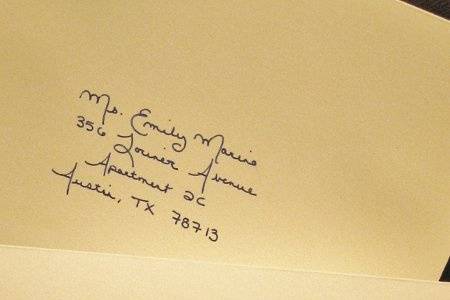 Ms. Emily Marie
356 Loriner Avenue
Apartment 2C
Austin, TX 78713